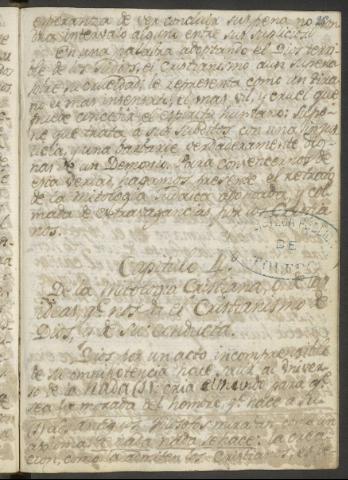 esperanza de ver concluir su pena no
bra intervalo alguno entre sus suplicios
En una palabra adoptando el Dios terri
ble de los Judios, el Cristianismo aun
su crueldad: le representa como un tira
no el mas insensato, el mas vil, y cruel que
puede concebir el espiritu humano: supo
ne que trata a sus subditos con una injus
ticia, y una barbarie verdaderamente dig
nas de un Demonio. Para convencernos de
esta verdad, hagamos presente el retrato
de la mitologia Judaica adoptada y col
mada de extravagancias por los Cristia
nos.
DE
TOLEDO
Capitulo 4.º
De la mitologia Cristiana, o de las
ideas q.e nos da el Cristianismo de
Dios, y de su conducta.
Dios por un acto incomprensible
de su omnipotencia hace salir al univer
so de la nada (1): cria el mundo para q.e
sea la morada del hombre, q.e hace a su
(1) antiguos filosofos miraban como un
axioma la nada nada se hace: la crea
cion, como la admiten los Cristianos,